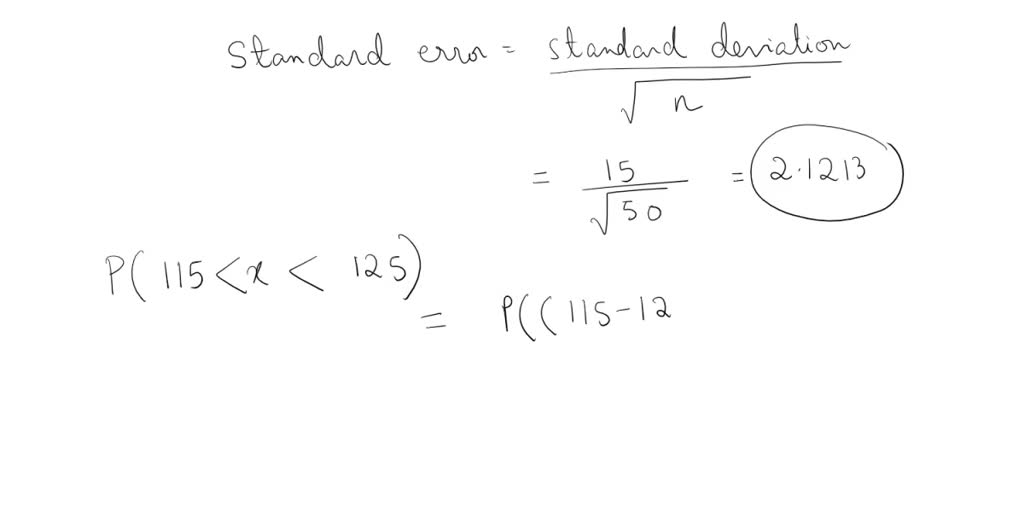 Standard error = standard deviation / √n
= 15 / √50 = 2.1213
P(115 < x < 125)
= P((115-12